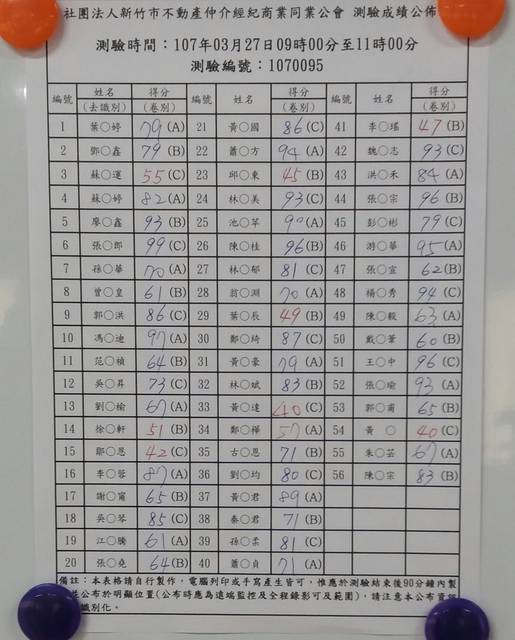 社團法人新竹市不動產仲介經紀商業同業公會 測驗成績公佈
測驗時間：107年03月27日09時00分至11時00分
測驗編號：1070095
編號 姓名(去識別) 得分(卷別) 編號 姓名 得分(卷別) 編號 姓名 得分(卷別)
1 葉○婷 79(A) 21 黃○國 86(C) 41 李○瑤 47(B)
2 鄧○鑫 79(B) 22 蕭○方 94(A) 42 魏○志 93(C)
3 蘇○運 55(C) 23 邱○東 45(B) 43 洪○禾 84(A)
4 蘇○婷 82(A) 24 林○美 93(C) 44 張○宗 96(B)
5 廖○鑫 93(B) 25 池○苹 90(A) 45 彭○彬 79(C)
6 張○郎 99(C) 26 陳○桂 96(B) 46 游○華 95(A)
7 孫○華 70(A) 27 林○郁 81(C) 47 張○宣 62(B)
8 曾○皇 61(B) 28 翁○淵 70(A) 48 楊○秀 94(C)
9 郭○洪 86(C) 29 葉○辰 49(B) 49 陳○毅 63(A)
10 馮○迪 97(A) 30 鄭○綺 87(C) 50 戴○葦 60(B)
11 范○楨 64(B) 31 黃○豪 79(A) 51 王○中 96(C)
12 吳○昇 73(C) 32 林○斌 83(B) 52 張○瑜 93(A)
13 劉○榆 67(A) 33 黃○達 40(C) 53 郭○甫 65(B)
14 徐○軒 51(B) 34 鄭○樺 57(A) 54 黃○ 40(C)
15 鄭○恩 42(C) 35 古○恩 71(B) 55 朱○芸 67(A)
16 李○蓉 87(A) 36 劉○均 80(C) 56 陳○宗 83(B)
17 謝○甯 65(B) 37 黃○君 89(A)
18 吳○琴 85(C) 38 秦○君 71(B)
19 江○騰 61(A) 39 孫○柔 81(C)
20 張○堯 64(B) 40 蕭○貞 71(A)
備註：本表格請自行製作，電腦列印或手寫產生皆可，惟應於測驗結束後90分鐘內製
並公布於明顯位置(公布時應為遠端監控及全程錄影可及範圍)，請注意本公布資訊
識別化。